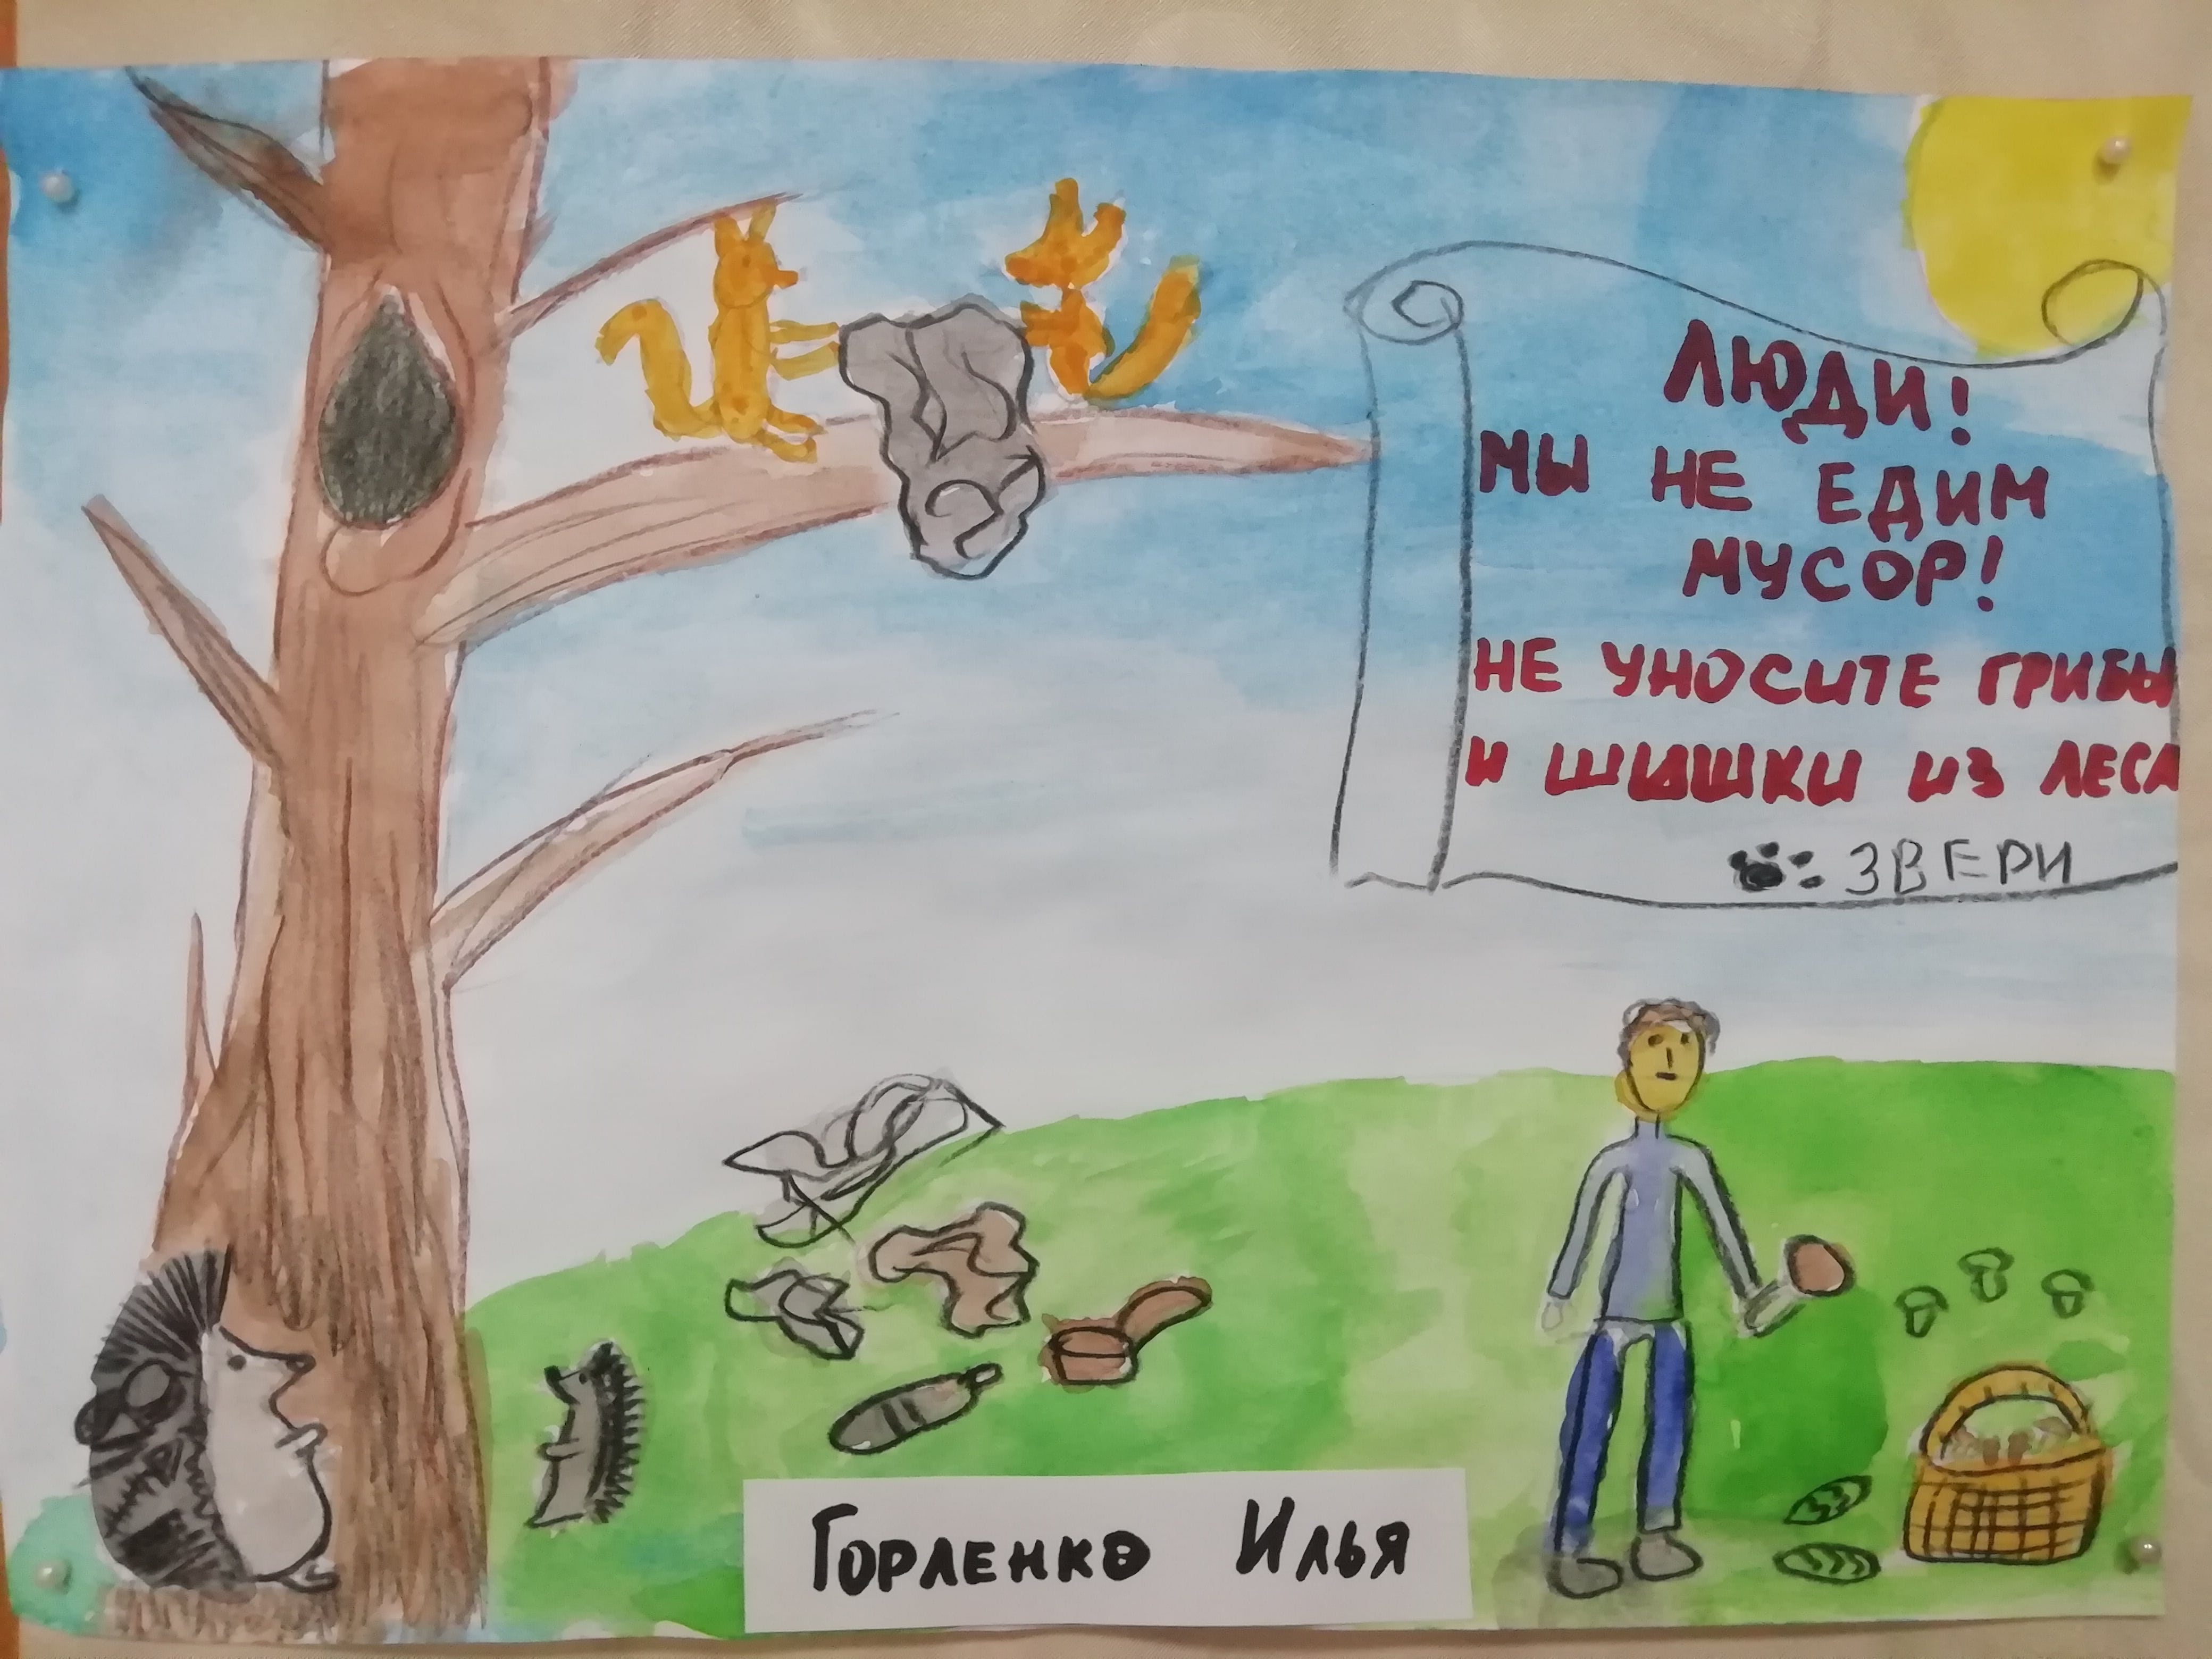 ЛЮДИ!
МЫ НЕ ЕДИМ
МУСОР!
НЕ УНОСИТЕ ГРИБЫ
И ШИШКИ ИЗ ЛЕСА
ЗВЕРИ
ГОРЛЕНКО ИЛЬЯ